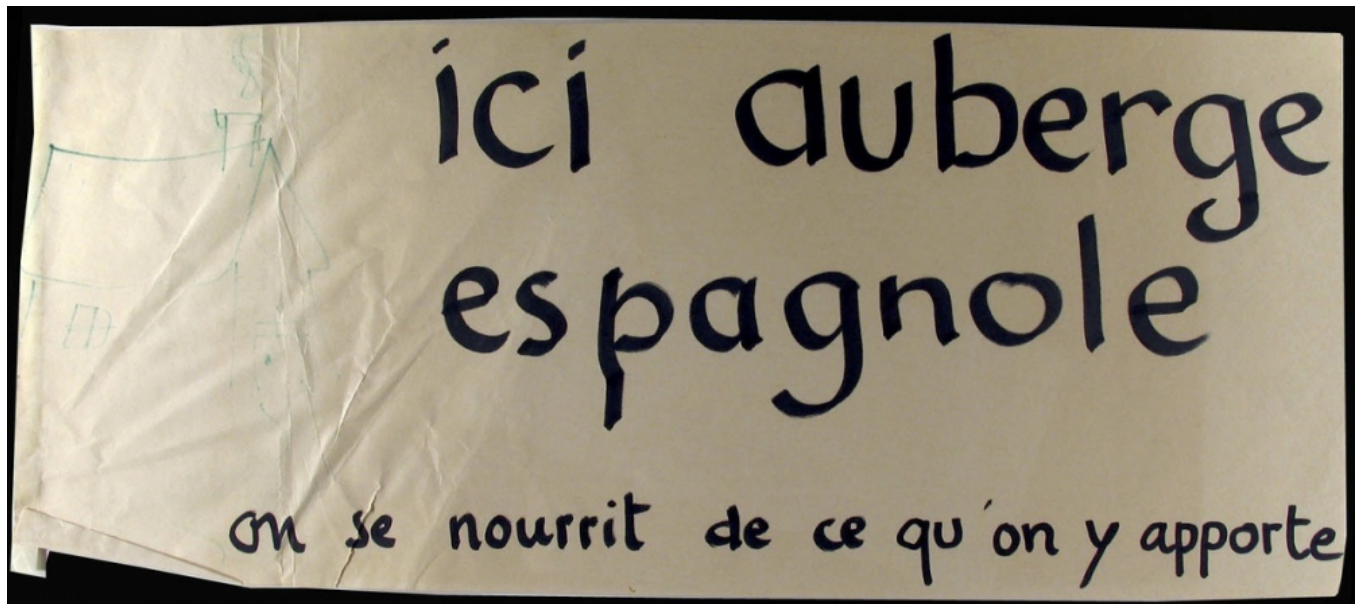 ici auberge
espagnole
on se nourrit de ce qu'on y apporte